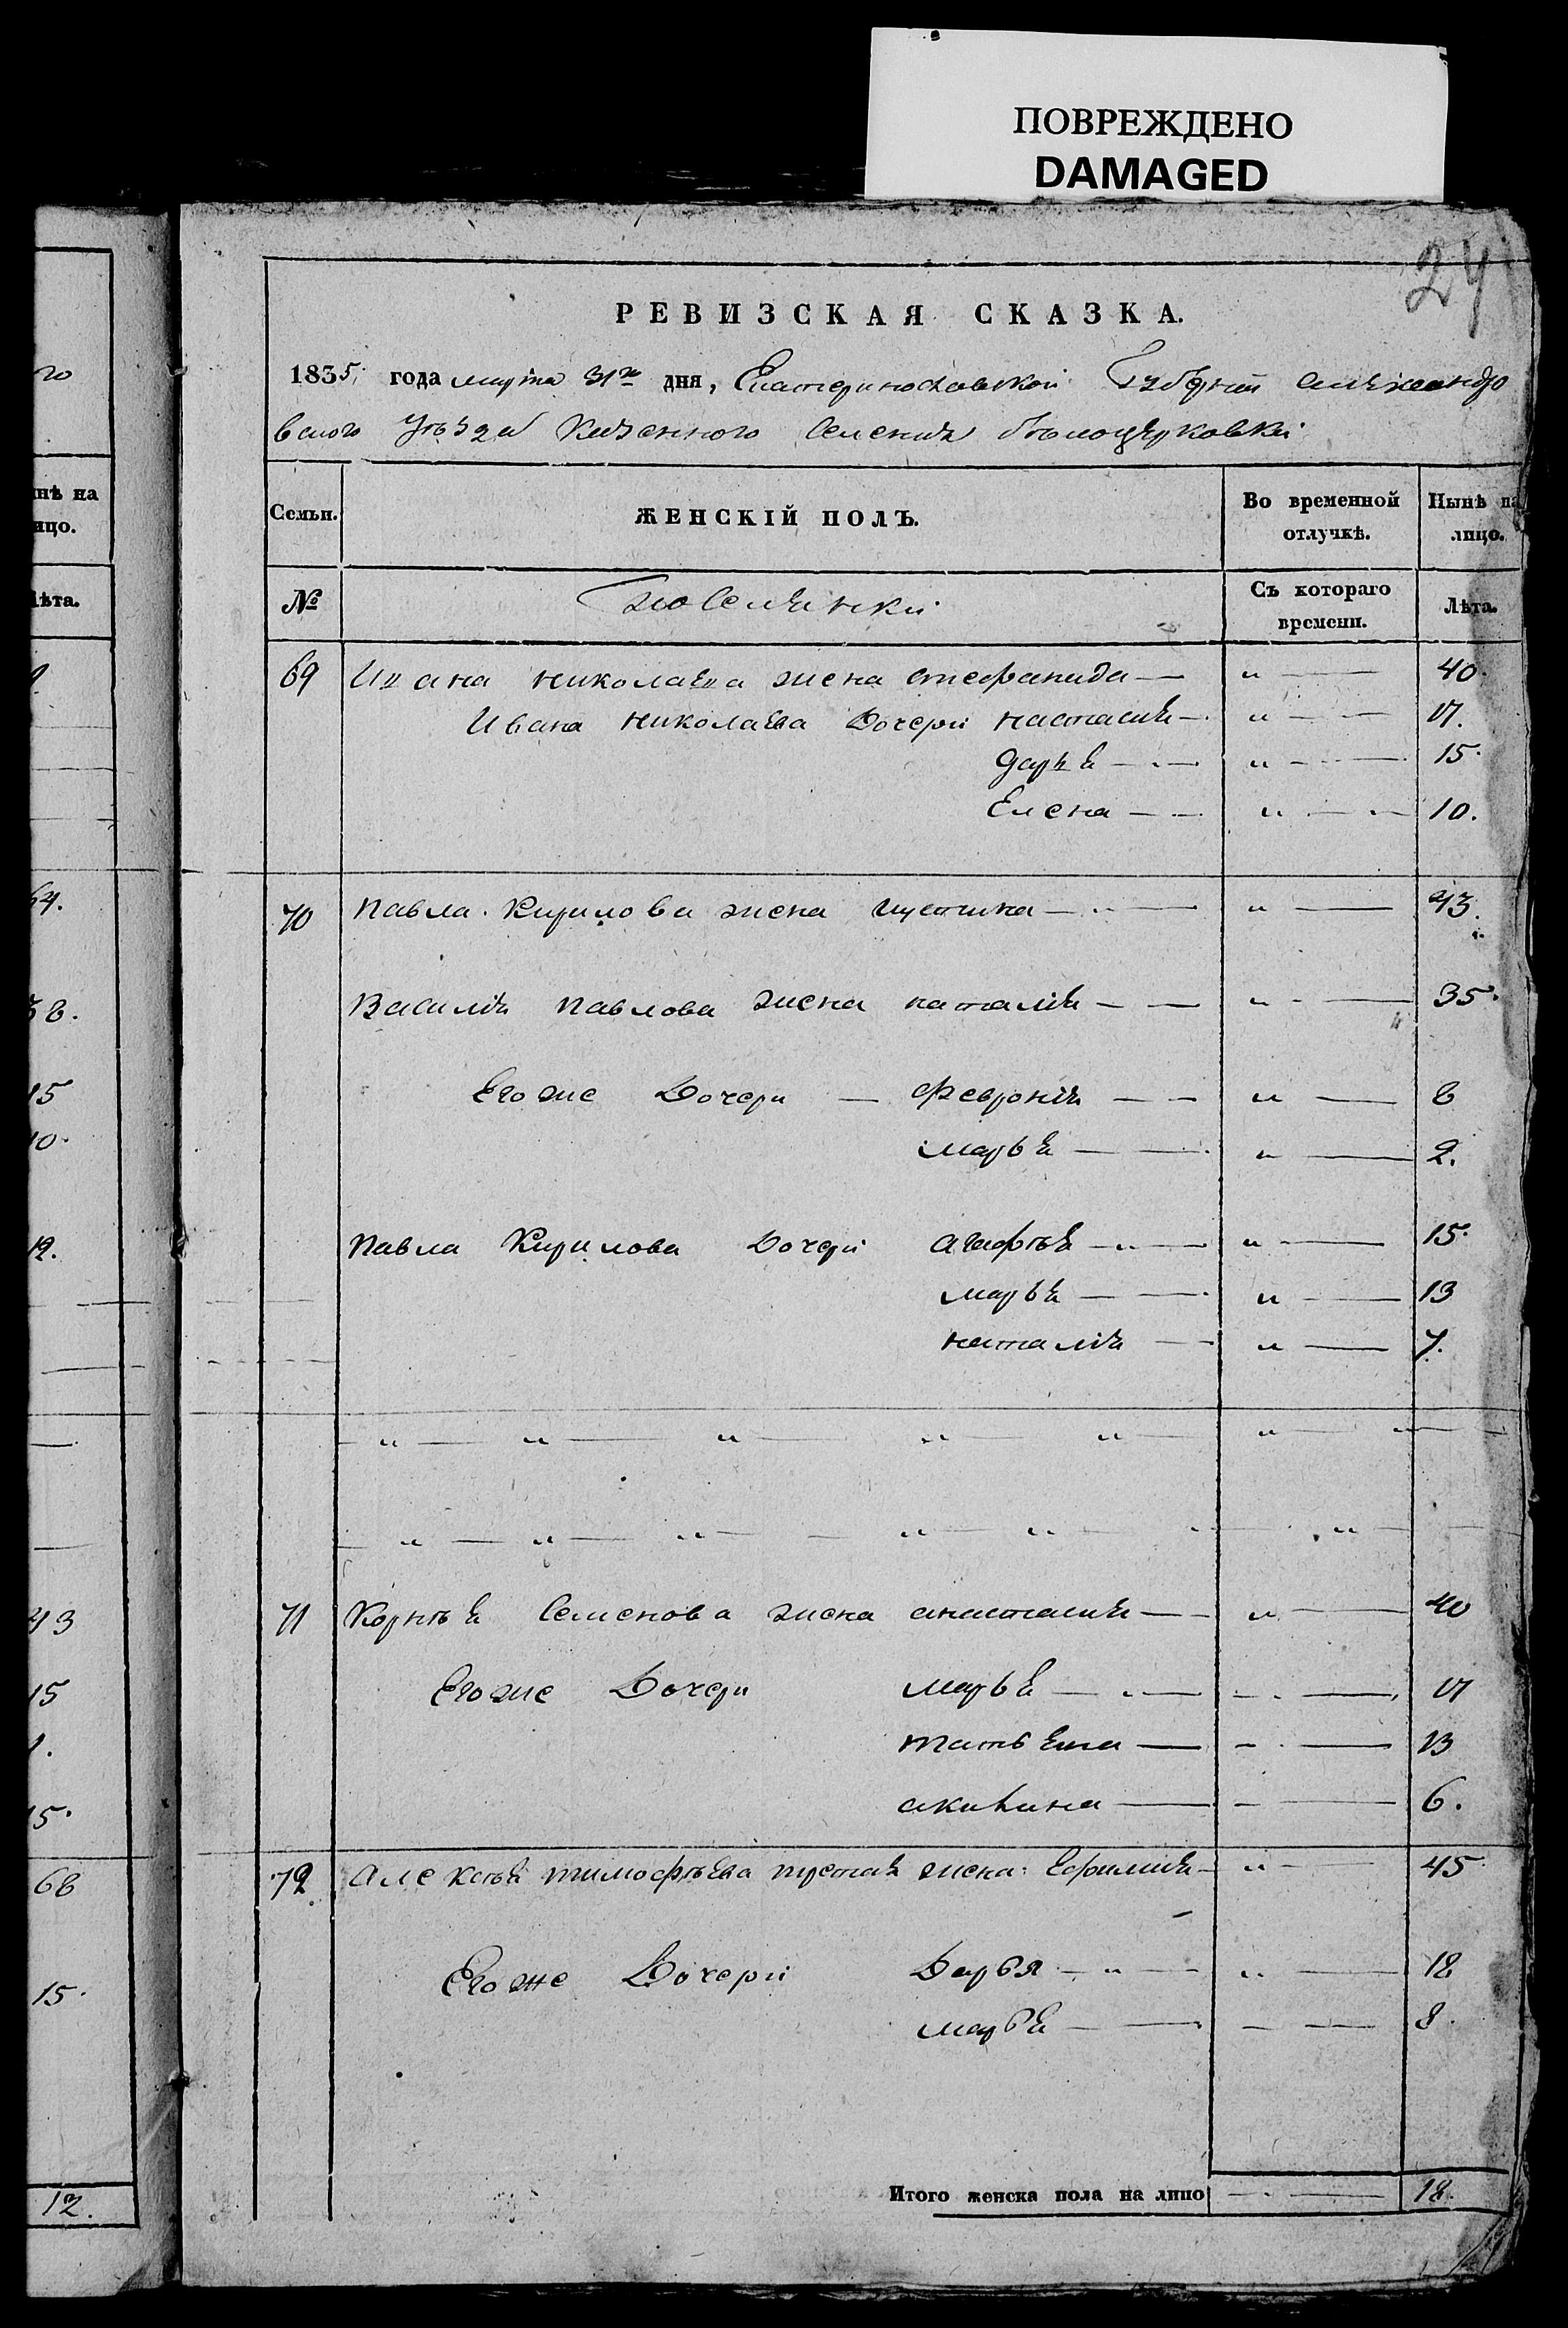 ПОВРЕЖДЕНО
DAMAGED
24
РЕВИЗСКАЯ СКАЗКА.
1835 года марта 31го дня, Екатеринославской Губерніи Александро
вского Уѣзда Казенного Селенія бѣлоцерковки
Семьи. ЖЕНСКІЙ ПОЛЪ. Во временной отлучкѣ. Нынѣ на лицо.
№ поселянки Съ котораго времени. Лѣта.
69 Ивана николаева жена стефанида — „ — 40.
Ивана николаева Дочери настасія — „ — 17.
дарья — „ — 15.
Елена — „ — 10.
70 павла Кирилова жена иустина — „ — 43.
Василія павлова жена наталія — „ — 35.
Егоже Дочери — февронія — „ — 8
марья — „ — 2.
павла Кирилова Дочери агафѣя — „ — 15.
марья — „ — 13
наталія — „ — 7.
71 Корнѣя Семенова жена анастасія — „ — 40
Егоже Дочери марья — 17
татьяна — 13
акилина — 6.
72 алексѣя тимофѣева жена Ефимія — „ — 45
Егоже Дочери Дарья — „ — 18
марья — 8.
Итого женска пола на лицо — 18.
нѣ на
ицо.
Лѣта.
64.
38.
15
10.
12.
43
15
15.
68
15.
12.